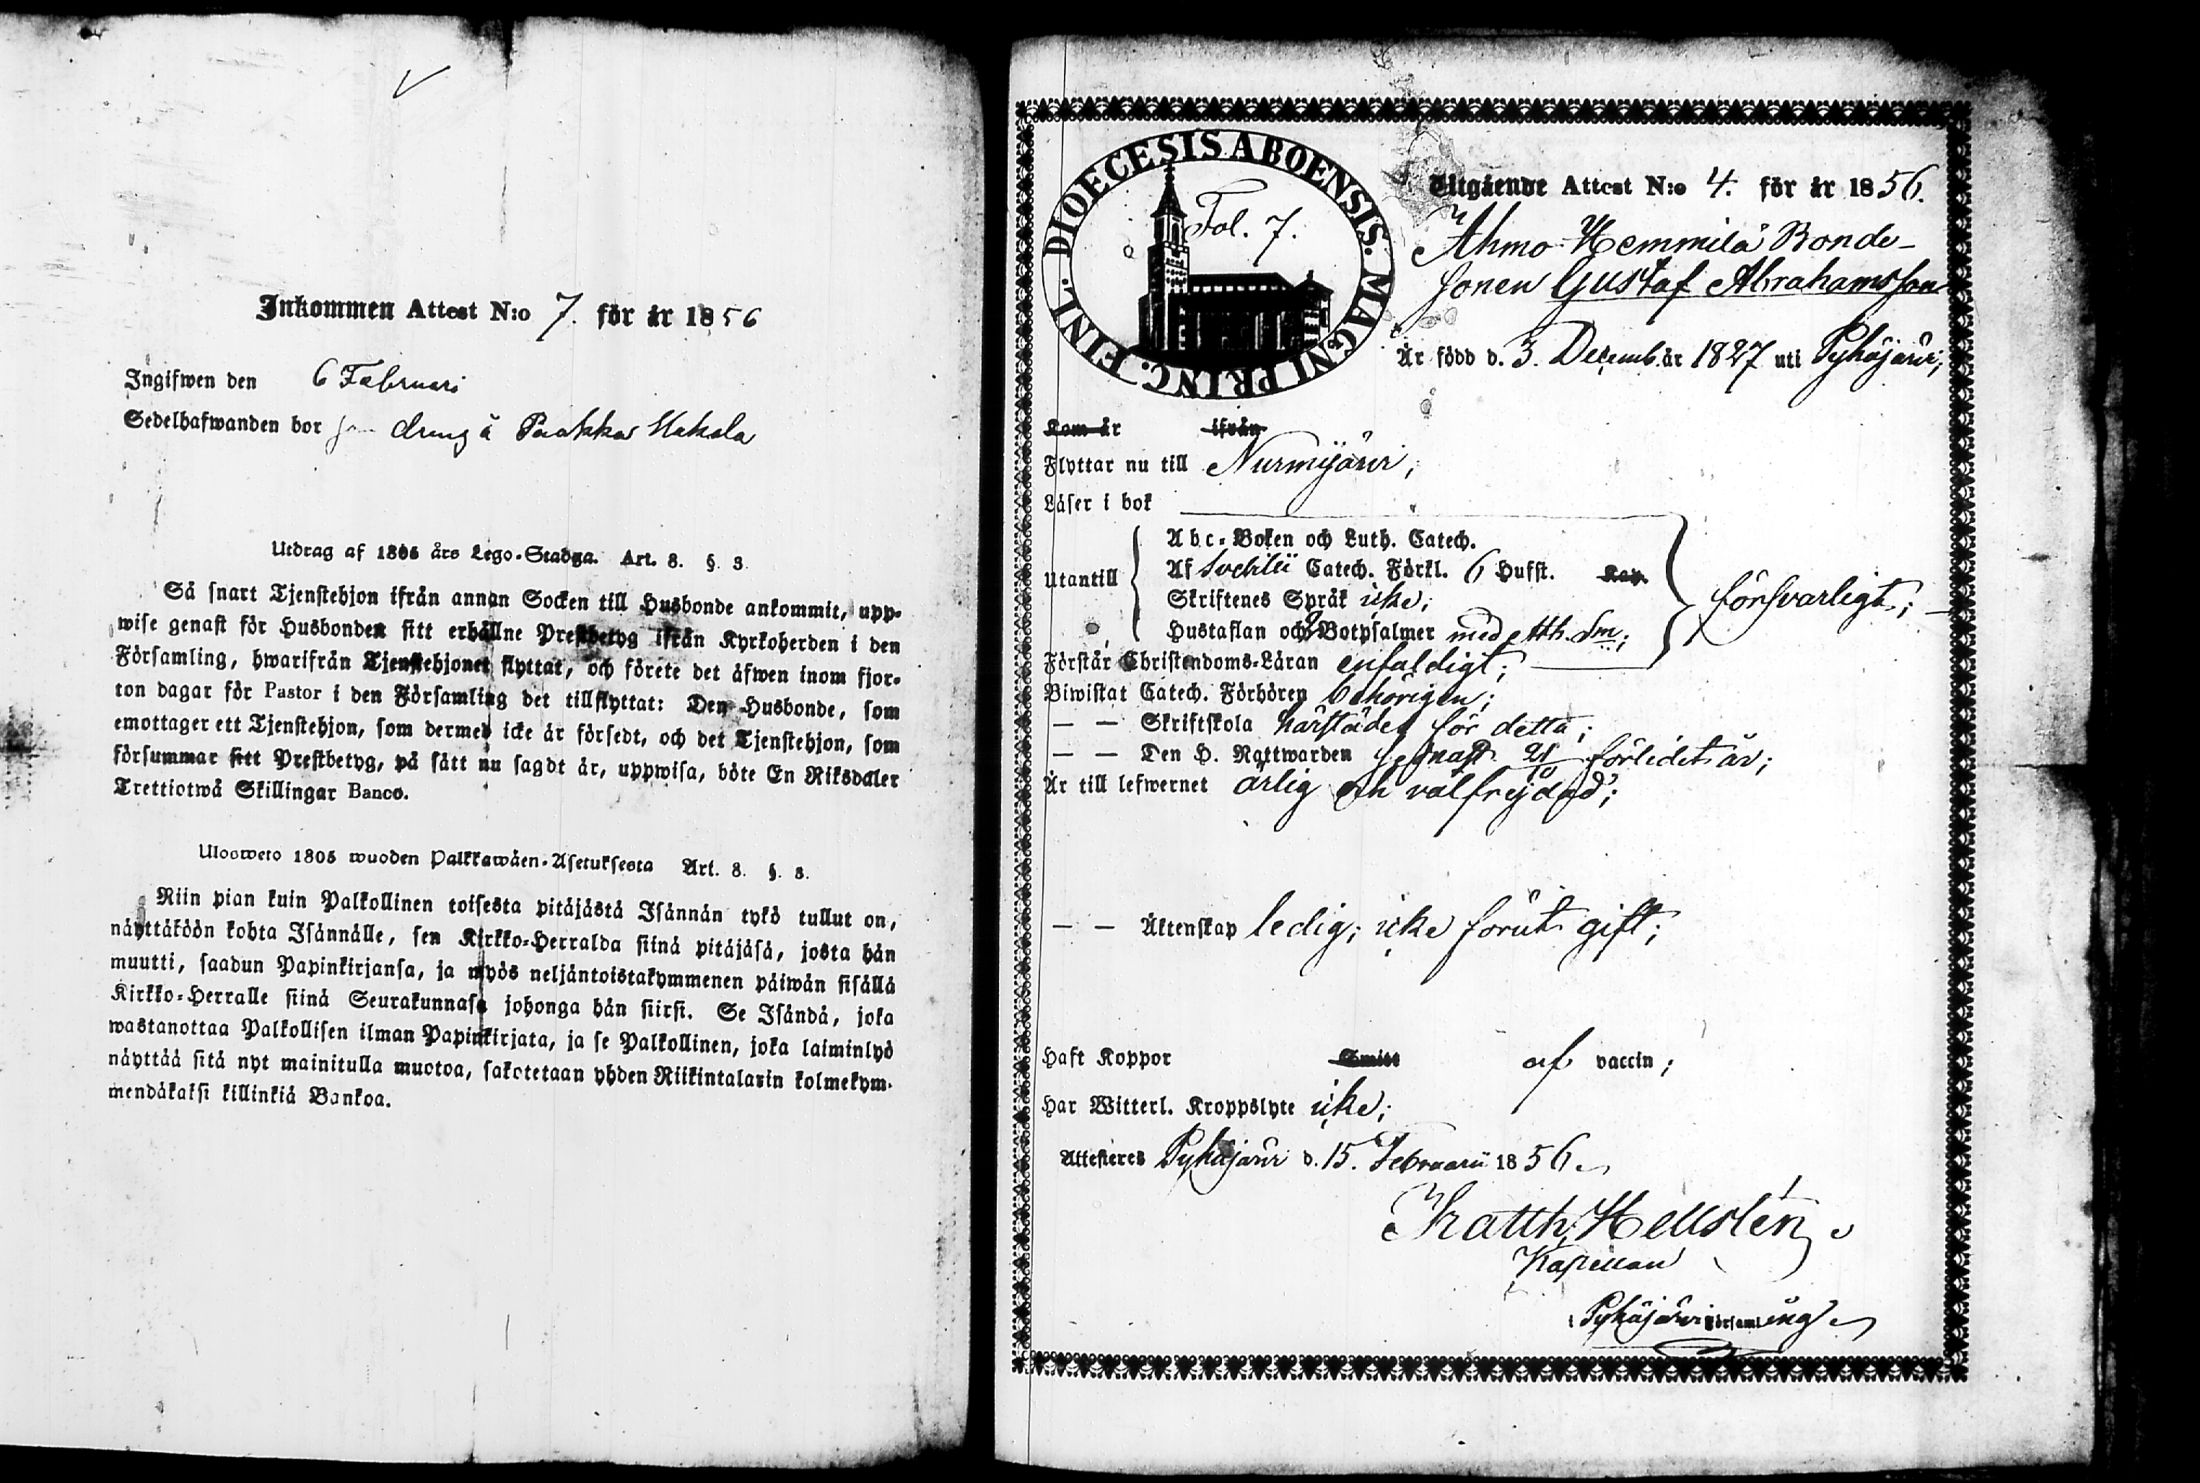 Inkommen Attest N:o 7. för år 1856
Ingifwen den 6 Februari
Sedelhafwanden bor som dräng å Paakka Uhkola
Utdrag af 1805 års Lego-Stadga. Art. 8. §. 3.
Så snart Tjenstehjon ifrån annan Socken till Husbonde ankommit, upp-
wise genast för Husbonden sitt erhållne Prestbetyg ifrån Kyrkoherden i den
Församling, hwarifrån Tjenstehjonet flyttat, och förete det äfwen inom fjor-
ton dagar för Pastor i den Församling det tillflyttat: Den Husbonde, som
emottager ett Tjenstehjon, som dermed icke är försedt, och det Tjenstehjon, som
försummar sitt Prestbetyg, på sätt nu sagdt är, uppwisa, böte En Riksdaler
Trettiotwå Skillingar Banco.
Ulosweto 1805 wuoden Palkkawäen-Asetuksesta Art. 8. §. 3.
Niin pian kuin Palkollinen toisesta pitäjästä Isännän tykö tullut on,
näyttäköön kohta Isännälle, sen Kirkko-Herralda siinä pitäjäsä, josta hän
muutti, saadun Papinkirjansa, ja myös neljäntoistakymmenen päiwän sisällä
Kirkko-Herralle siinä Seurakunnasa johonga hän siirsi. Se Isändä, joka
wastanottaa Palkollisen ilman Papinkirjata, ja se Palkollinen, joka laiminlyö
näyttää sitä nyt mainitulla muotoa, sakotetaan yhden Riikintalarin kolmekym-
mendäkaksi killinkiä Bankoa.
DIOECESIS ABOENSIS. MAGNI PRINC. FINL.
Fol. 7.
Utgående Attest N:o 4. för år 1856.
Ahmo Hemmilä Bonde-
sonen Gustaf Abrahamsson
Är född d. 3. Decemb. år 1827 uti Pyhäjärvi;
Kom år ifrån
Flyttar nu till Nurmijärvi;
Läser i bok
Abc-Boken och Luth. Catech.
Utantill Af Svebilii Catech. Förkl. 6 Hufst. Kap. försvarligt;
Skriftenes Språk icke;
Hustaflan och Botpsalmer med Ath. Sm.;
Förstår Christendoms-Läran enfaldigt;
Biwistat Catech. Förhören behörigen;
— — Skriftskola härstädes för detta;
— — Den H. Nattwarden senast 21/10 förledet år;
Är till lefwernet ärlig och välfrejdad;
— — Äktenskap ledig; icke förut gift;
Haft Koppor Smitt af vaccin;
Har Witterl. Kroppslyte icke;
Attesteres Pyhäjärvi d. 15. Februarii 1856.
Matth. Hellstén
Kapellan
i Pyhäjärvi Församling